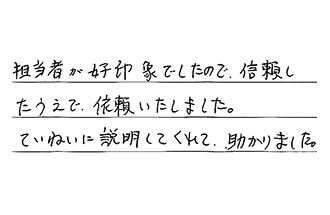 担当者が好印象でしたので、信頼し
たうえで、依頼いたしました。
ていねいに説明してくれて、助かりました。